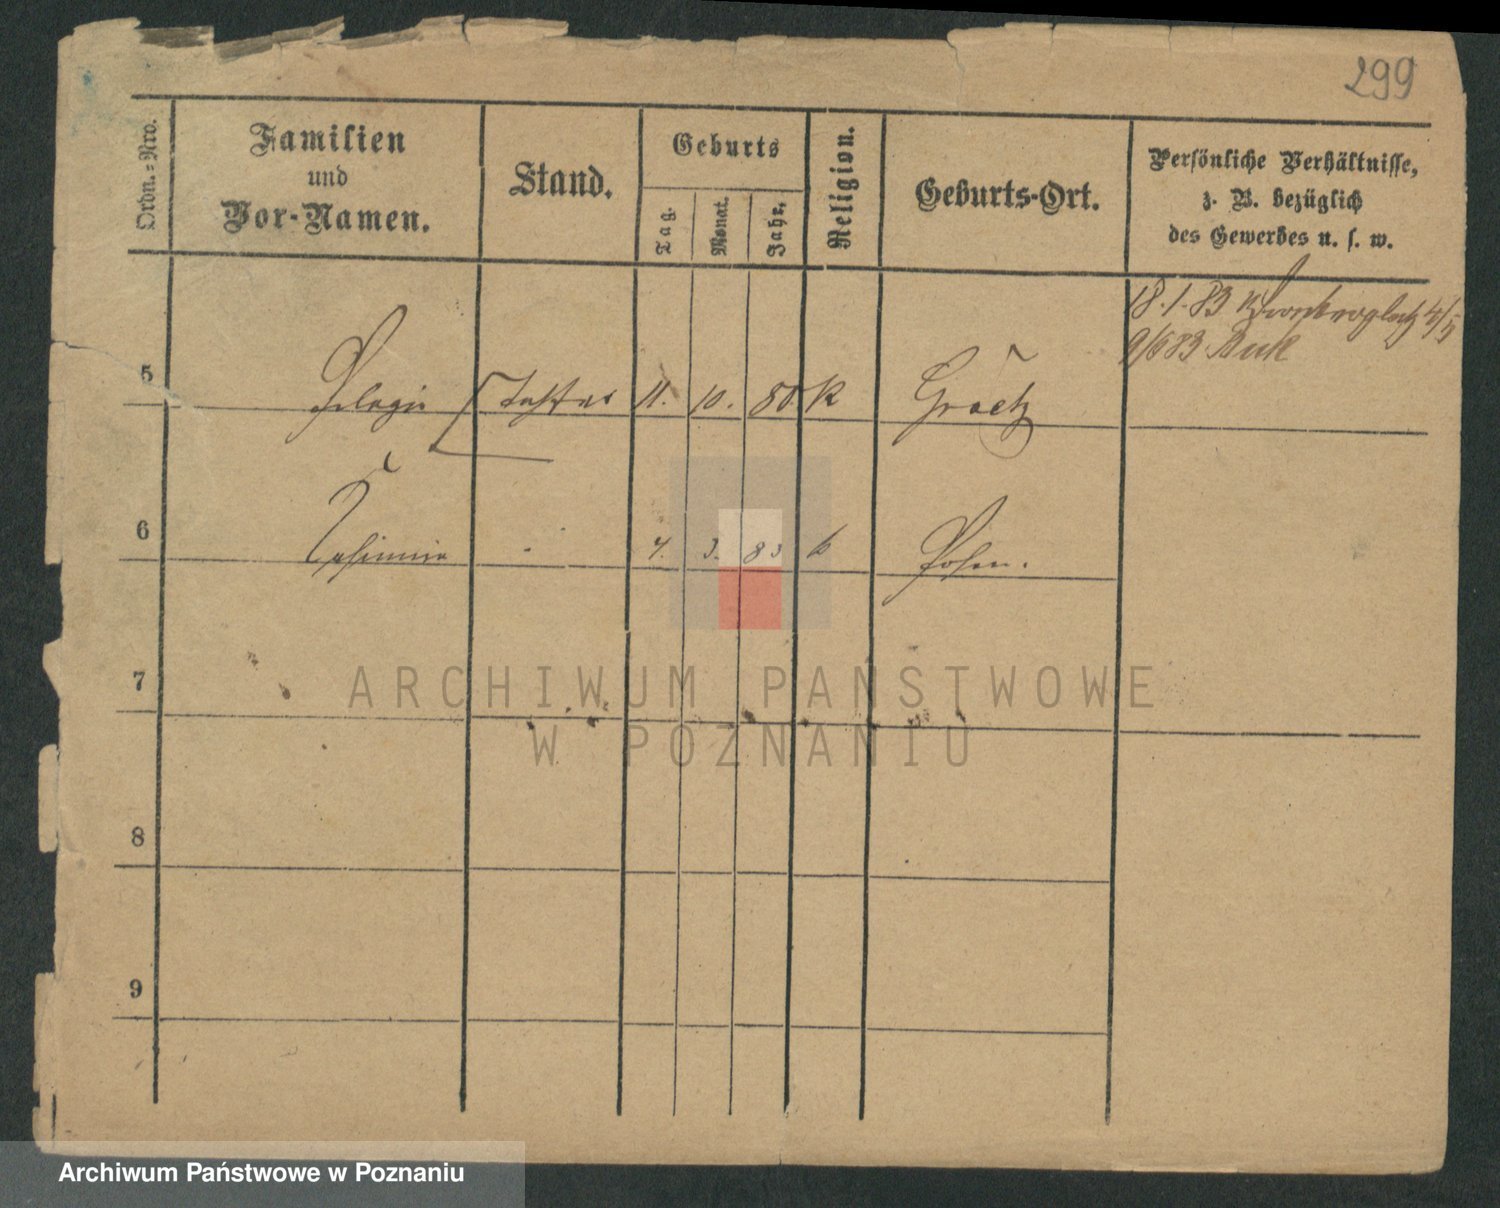 299
Ordn.-Nro.
Familien
und
Vor-Namen.
Stand.
Geburts
Tag.
Monat.
Jahr.
Religion.
Geburts-Ort.
Persönliche Verhältnisse,
z. B. bezüglich
des Gewerbes u. s. w.
18.1.83 4/5
9/6 83 Buk
5 Pelagia Tochter 11. 10. 80 K Graetz
6 Kasimira 4. 3. 83 k Posen.
7
8
9
ARCHIWUM PAŃSTWOWE
W POZNANIU
Archiwum Państwowe w Poznaniu